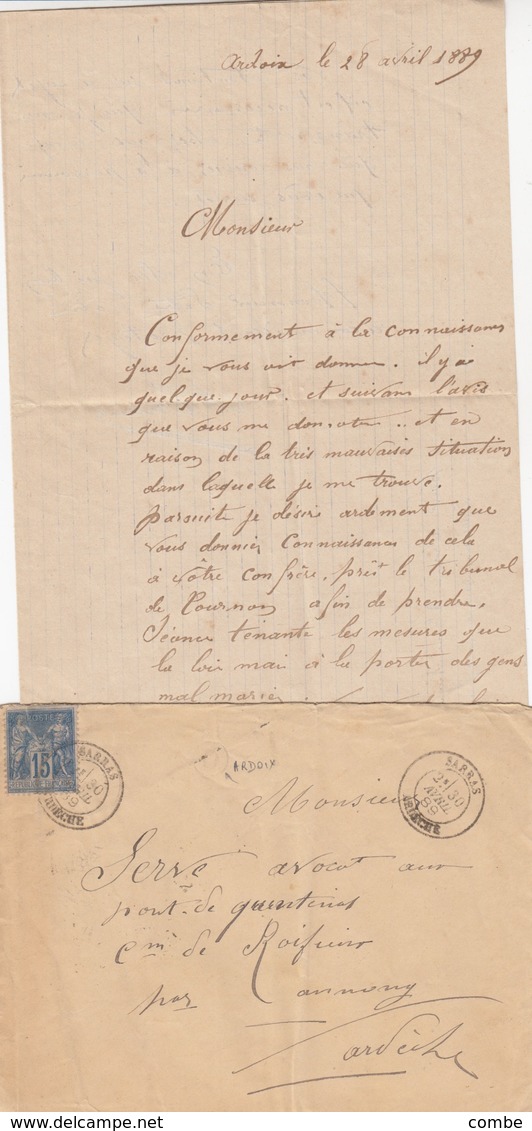 ardoix le 28 avril 1889
Monsieur
Conformement à la connaissance
que je vous ait donne. il y a
quelque jour. et suivant l'avis
que vous me donnote.. et en
raison de la tris mauvaises situation
dans laquelle je me trouve.
parsuite je désire ardement que
vous donnier connaissance de cela
à vôtre confrère, prèt le tribunal
de Tournon afin de prendre,
Séance tenante les mesures que
la loix mai à la porter des gens
mal marier.
POSTE
15
REPUBLIQUE FRANCAISE
SARRAS
30
AVRIL
89
ARDECHE
ARDOIX
SARRAS
2E 30
AVRIL
89
ARDECHE
Monsieur
Serve avocat aux
pont de quintenas
cm de Roifieux
par annony
ardèche
combe